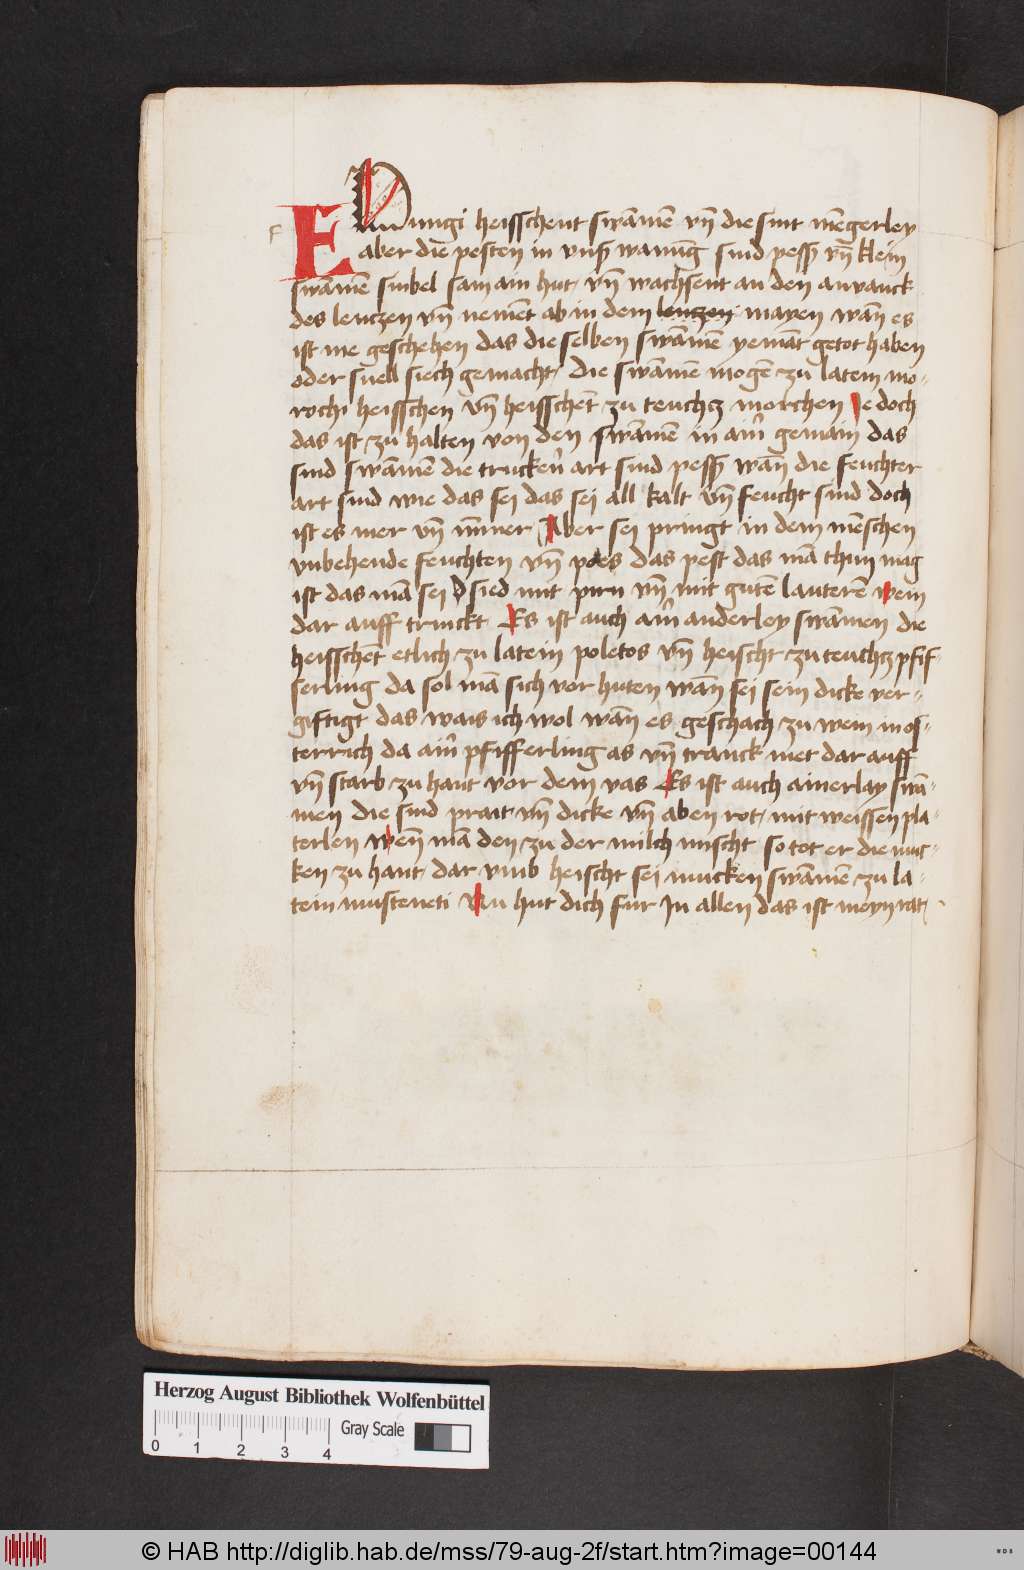 F
Fūungi heisschent swāmē vn̄ die sint mēgerley
aber die pesten in vnsꝰ wanūg sind pessꝰ vn̄ klein
swāmē sinbel sam ain hut vn̄ wachsent an den anvanck
des lenczen vn̄ nemēt ab in dem lenczen mayen wān es
ist nie geschehen das die selben swāmē yemāt getot haben
oder snell siech gemacht die swāmē mogē zu latein mo-
rochi heisschen vn̄ heisschēt zu teuchcz morchen Je doch
das ist zu halten von den swāmē in aīn̄ gemain das
sind swāmē die trucken̄ art sind pessꝰ wān die feuchter
art sind wie das sei das sei all kalt vn̄ feucht sind doch
ist es mer vn̄ mīner Aber sei pringt in dem mēschen
vnbehende feuchten vn̄ poes das pest das mā thun mag
ist das mā sei sied mit pirn vn̄ mit gutē lauterē wein
dar auff trinckt Es ist auch aīn̄ anderley swāmen die
heisschēt etlich zu latein poletos vn̄ heischt zu teuchcz pfif-
ferling da sol mā sich vor huten wān sei sein dicke ver-
giftigt das wais ich wol wān es geschach zu wein in os-
terrich da aīn̄ pfifferling as vn̄ tranck met dar auff
vn̄ starb zu hant vor dem vas Es ist auch ainerlay swā-
men die sind prait vn̄ dicke vn̄ aben rot mit weissen pla-
terlen wēn mā den zu der milch mischt so tot er die muc-
ken zu hant dar vmb heischt sei mucken swāmē zu la-
tein musteneti Nu hut dich fur In allen das ist meyn rat
Herzog August Bibliothek Wolfenbüttel
Gray Scale
0 1 2 3 4
© HAB http://diglib.hab.de/mss/79-aug-2f/start.htm?image=00144